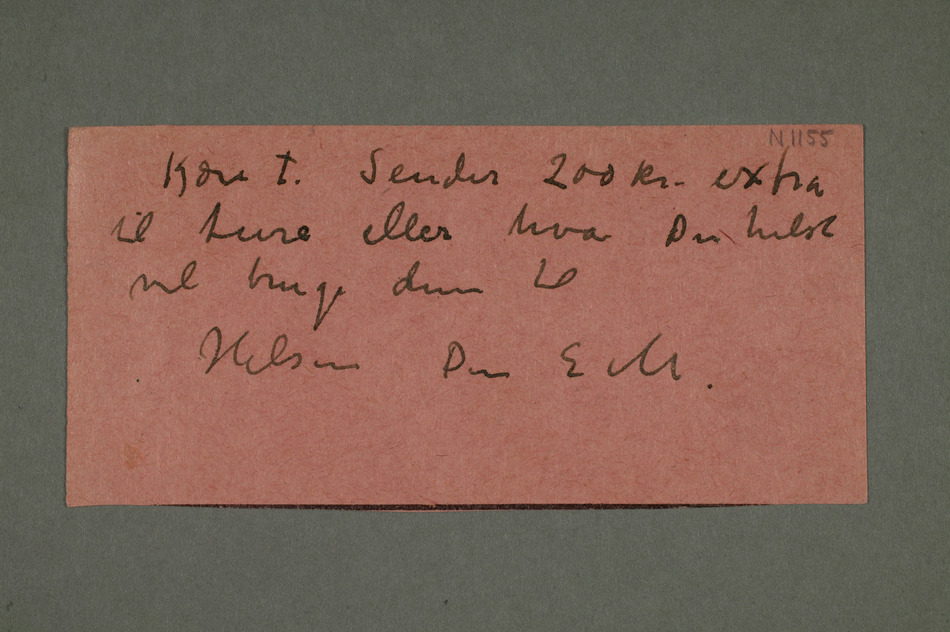 N 1155
Kjære T. Sender 200 kr. extra
til turé eller hva Du helst
vil bruge dem til
Hilsen Din E M.